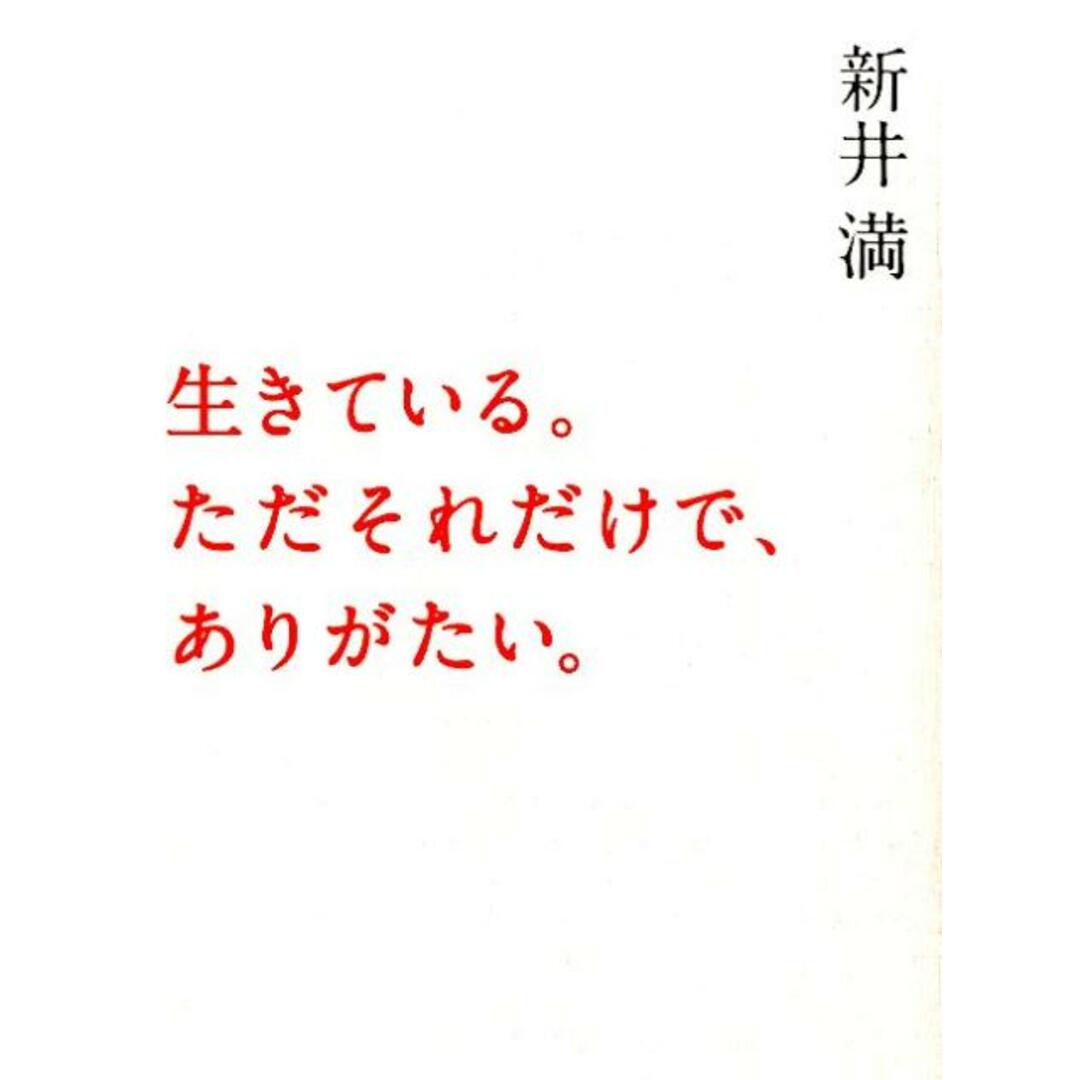 新井 満
生きている。
ただそれだけで、
ありがたい。